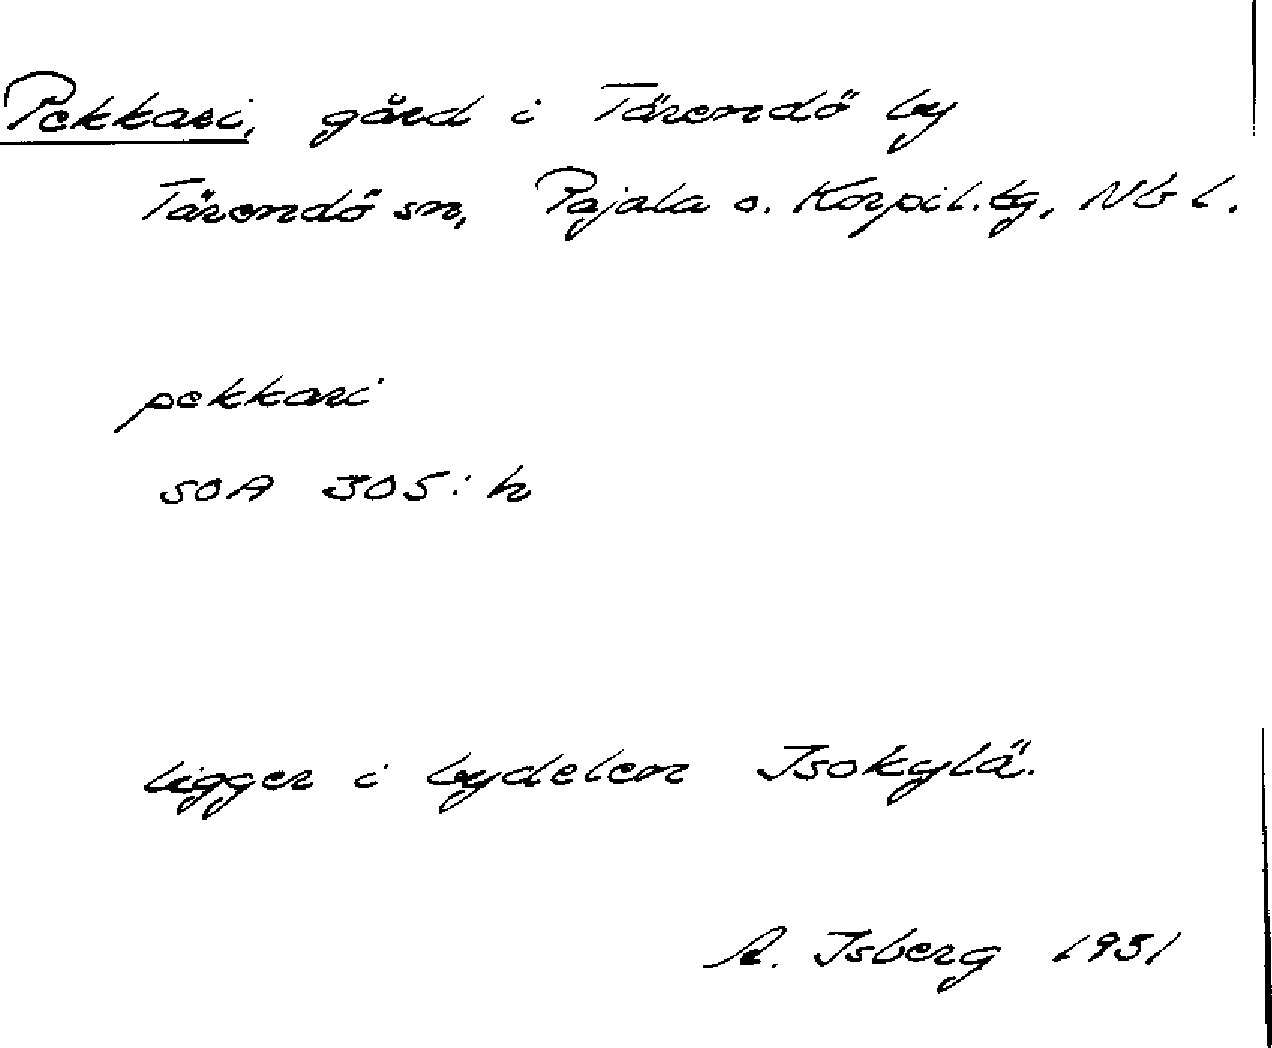 Pekkari, gård i Tärendö by
Tärendö sn, Pajala o. Korpil. tg, Nb l.
pekkari
SOA 305: h
ligger i bydelen Isokylä.
A. Isberg 1931